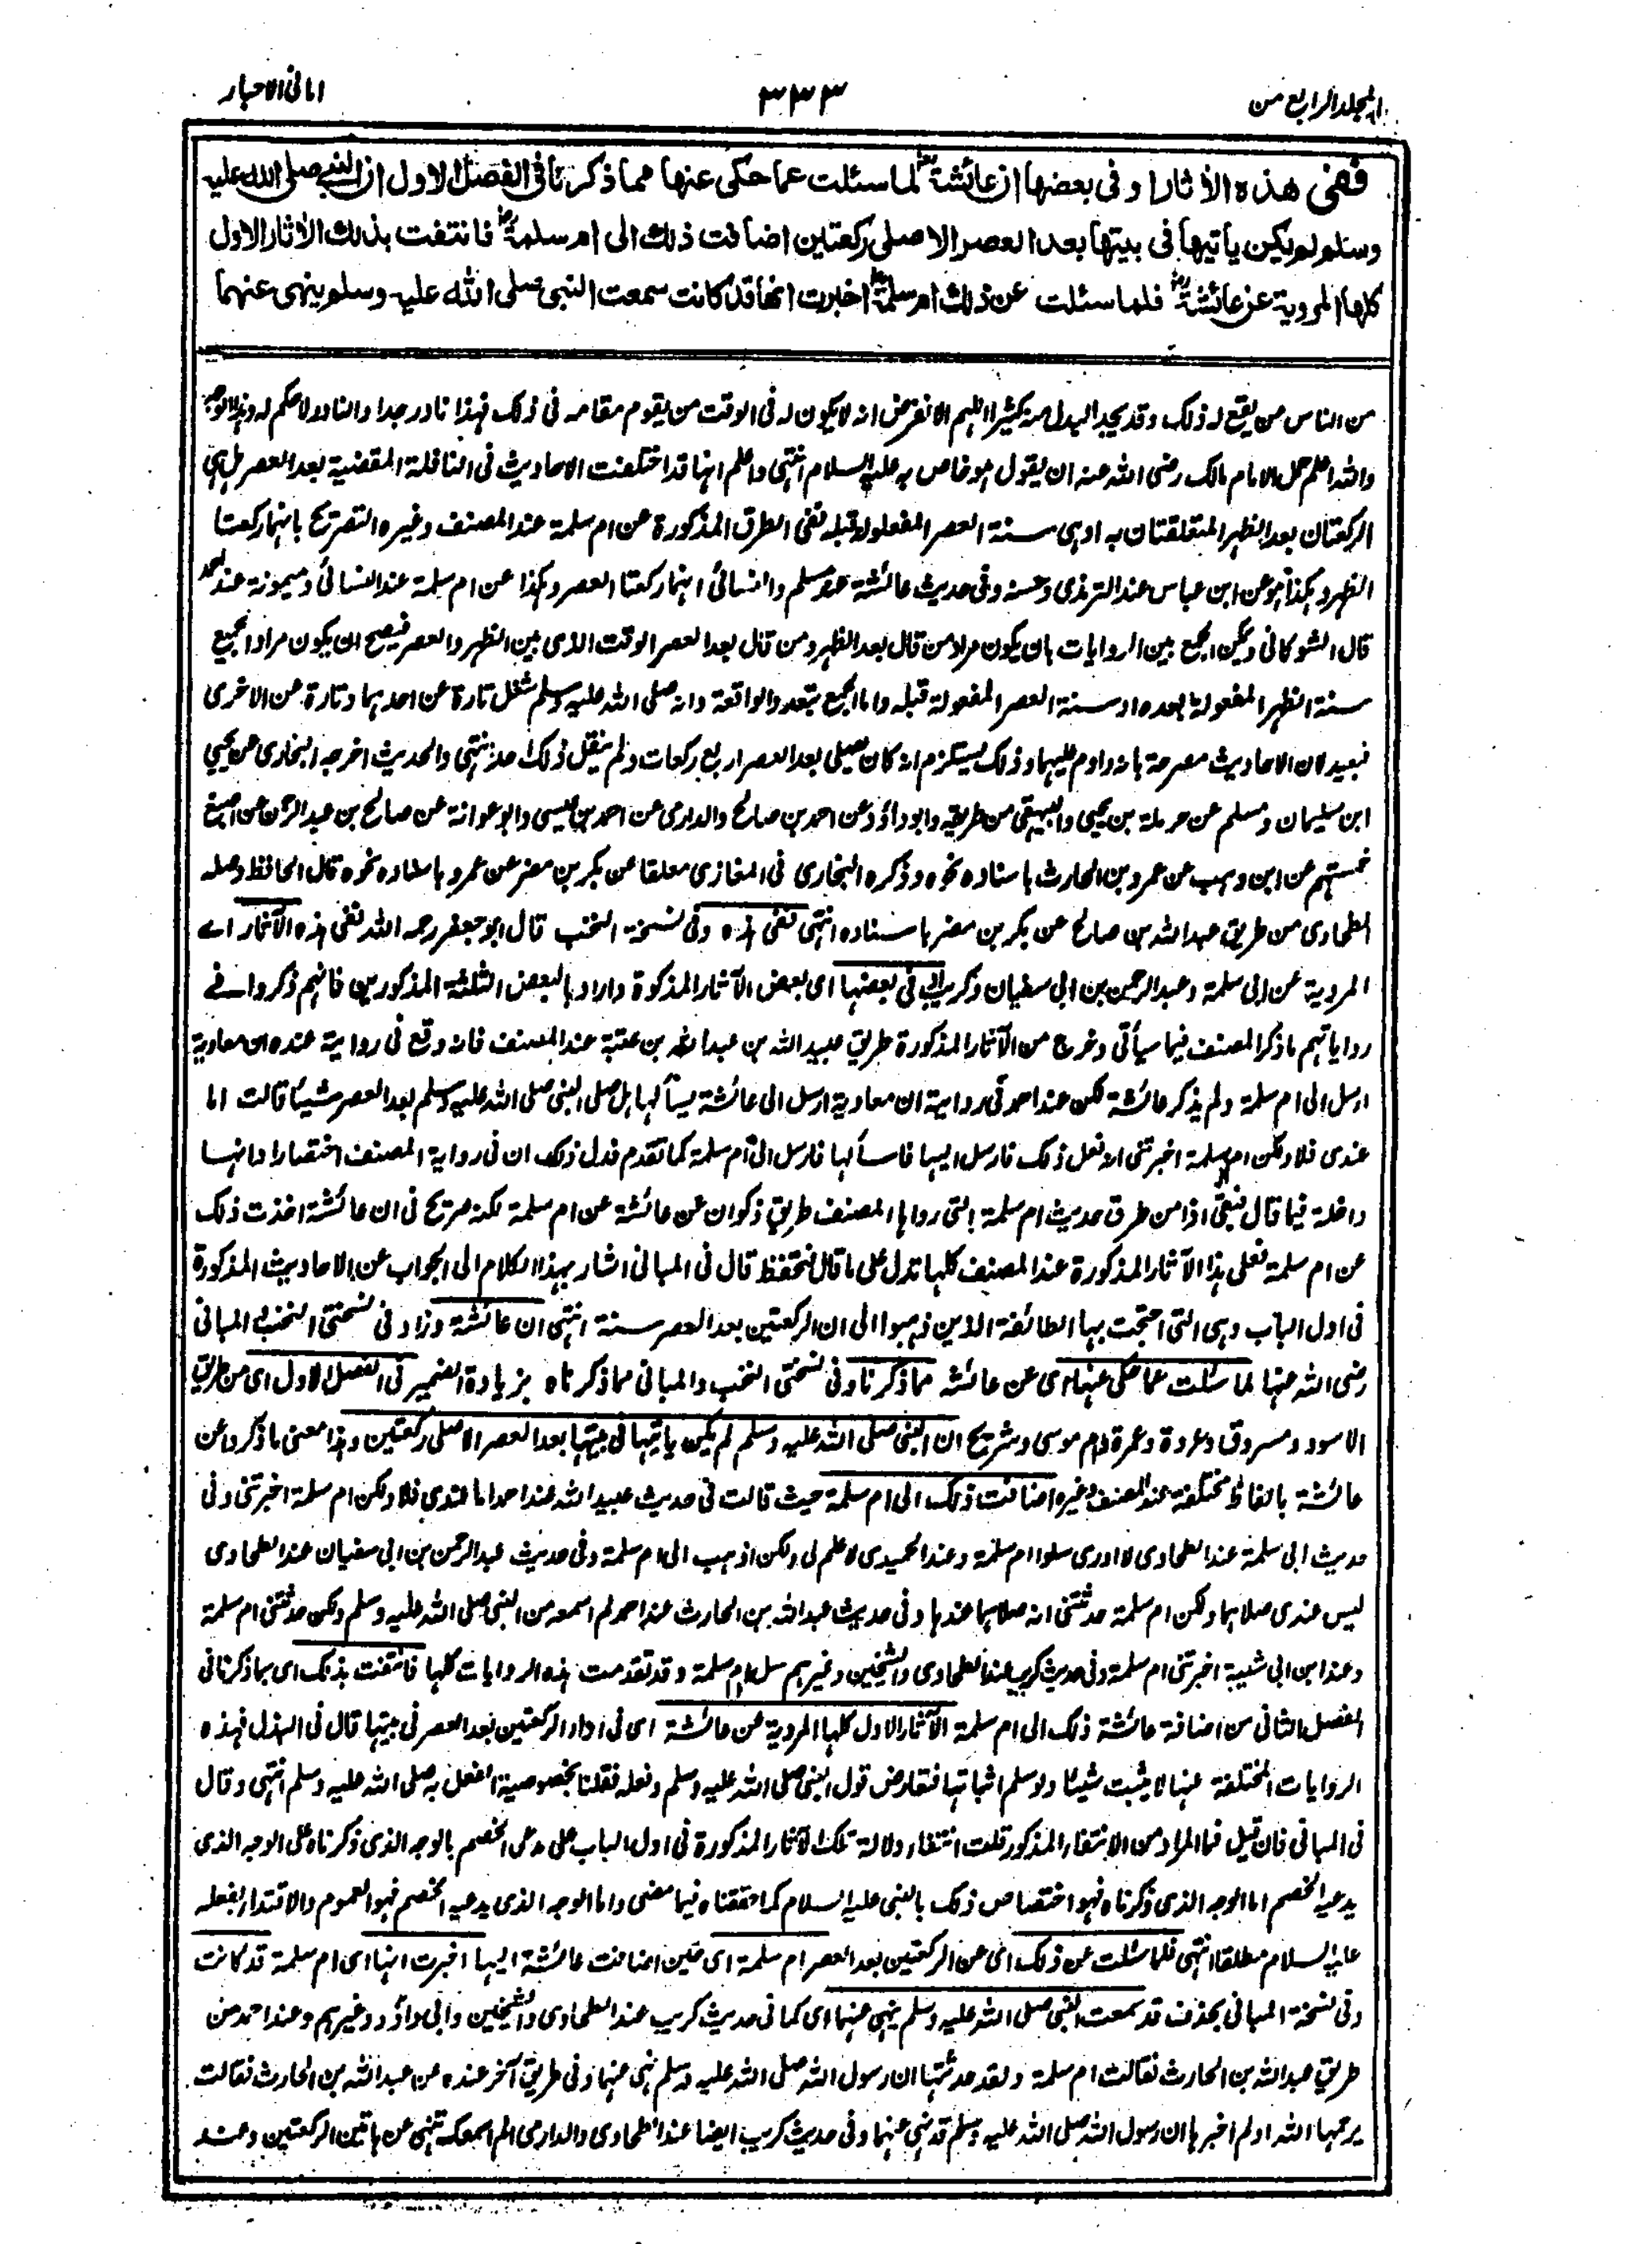 المجلد الرابع من
٣٣٣
امانی الاحبار
ففی هذه الآثار او فی بعضها ان عائشةؓ لما سئلت عما حکی عنها مما ذکرنا فی الفصل الاول ان النبی صلی الله علیه
وسلم لم یکن یاتیها فی بیتها بعد العصر الا صلی رکعتین اضافت ذلک الی ام سلمةؓ فانتفت بذلک الآثار الاول
کلها المرویة عن عائشةؓ فلما سئلت عن ذلک ام سلمةؓ اخبرت انها قد کانت سمعت النبی صلی الله علیه وسلم ینهی عنهما
من الناس من یقع له ذلک وقد یجد البدل منه کثیرا اللهم الا نفرض انه لا یکون له فی الوقت من یقوم مقامه فی ذلک فهذا نادر جدا والنادر لا حکم له ولهذا الوجه
والله اعلم حمل الامام مالک رضی الله عنه ان یقول هو خاص به علیه السلام انتهی واعلم انها قد اختلفت الاحادیث فی النافلة المقضیة بعد العصر هل هی
الرکعتان بعد الظهر المتعلقتان به او هی سنة العصر المفعولة قبله ففی الطرق المذکورة عن ام سلمة عند المصنف وغیره التصریح بانهما رکعتا
الظهر وهکذا هو عن ابن عباس عند الترمذی وحسنه وفی حدیث عائشة عند مسلم والنسائی انهما رکعتا العصر وهکذا عن ام سلمة عند النسائی ومیمونة عند احمد
قال الشوکانی ویمکن الجمع بین الروایات بان یکون مراد من قال بعد الظهر ومن قال بعد العصر الوقت الذی بین الظهر والعصر فیصح ان یکون مراد الجمیع
سنة الظهر المفعولة بعده او سنة العصر المفعولة قبله واما الجمع بتعدد الواقعة وانه صلی الله علیه وسلم شغل تارة عن احدهما وتارة عن الاخری
فبعید لان الاحادیث مصرحة بانه داوم علیهما وذلک یستلزم انه کان یصلی بعد العصر اربع رکعات ولم ینقل ذلک احد انتهی والحدیث اخرجه البخاری عن یحیی
ابن سلیمان ومسلم عن حرملة بن یحیی والبیهقی من طریقه وابوداؤد عن احمد بن صالح والدارمی عن احمد بن عیسی وابو عوانة عن صالح بن عبد الرحمن عن اصبغ
خمستهم عن ابن وهب عن عمرو بن الحارث باسناده نحوه وذکره البخاری فی المغازی معلقا عن بکر بن مضر عن عمرو باسناده نحوه قال الحافظ وصله
الطحاوی من طریق عبد الله بن صالح عن بکر بن مضر باسناده انتهی ففی هذه وفی نسخة النخب قال ابو جعفر رحمه الله ففی هذه الآثار اے
المرویة عن ابی سلمة وعبد الرحمن بن ابی سفیان وکریب او فی بعضها ای بعض الآثار المذکورة واراد بالبعض الثلثة المذکورین فانهم ذکروا فے
روایاتهم ما ذکر المصنف فیما سیأتی وخرج من الآثار المذکورة طریق عبید الله بن عبد الله بن عتبة عند المصنف فانه وقع فی روایة عنده ان معاویة
ارسل الی ام سلمة ولم یذکر عائشة لکن عند احمد فی روایة ان معاویة ارسل الی عائشة یسألها هل صلی النبی صلی الله علیه وسلم بعد العصر شیئا قالت اما
عندی فلا ولکن ام سلمة اخبرتنی انه فعل ذلک فارسل الیها فاسألها فارسل الی ام سلمة کما تقدم فدل ذلک ان فی روایة المصنف اختصارا وانها
داخلة فیما قال فبقی اذا من طرق حدیث ام سلمة التی رواها المصنف طریق ذکوان عن عائشة عن ام سلمة لکنه صریح فی ان عائشة اخذت ذلک
عن ام سلمة فعلی هذا الآثار المذکورة عند المصنف کلها تدل علی ما قال فتحفظ قال فی المبانی اشار بهذا الکلام الی الجواب عن الاحادیث المذکورة
فی اول الباب وهی التی احتجت بها الطائفة الذین ذهبوا الی ان الرکعتین بعد العصر سنة انتهی ان عائشة وزاد فی نسختی النخب والمبانی
رضی الله عنها لما سئلت عما حکی عنها ای عن عائشة مما ذکرنا وفی نسختی النخب والمبانی مما ذکرناه بزیادة الضمیر فی الفصل الاول ای من طریق
الاسود ومسروق وعروة وعمرة وام موسی وشریح ان النبی صلی الله علیه وسلم لم یکن یاتیها فی بیتها بعد العصر الا صلی رکعتین وهذا معنی ما ذکروا عن
عائشة بالفاظ مختلفة عند المصنف وغیره اضافت ذلک الی ام سلمة حیث قالت فی حدیث عبید الله عند احمد اما عندی فلا ولکن ام سلمة اخبرتنی وفی
حدیث ابی سلمة عند الطحاوی لا ادری سلوا ام سلمة وعند الحمیدی لا علم لی ولکن اذهب الی ام سلمة وفی حدیث عبد الرحمن بن ابی سفیان عند الطحاوی
لیس عندی صلاهما ولکن ام سلمة حدثتنی انه صلاهما عندها وفی حدیث عبد الله بن الحارث عند احمد لم اسمعه من النبی صلی الله علیه وسلم ولکن حدثتنی ام سلمة
وعند ابن ابی شیبة اخبرتنی ام سلمة وفی حدیث کریب عند الطحاوی والشیخین وغیرهم سل ام سلمة وقد تقدمت هذه الروایات کلها فانتفت بذلک ای بما ذکرنا فی
الفصل الثانی من اضافة عائشة ذلک الی ام سلمة الآثار الاول کلها المرویة عن عائشة ای فی اداء الرکعتین بعد العصر فی بیتها قال فی البذل فهذه
الروایات المختلفة عنها لا یثبت شیئا ولو سلم اثباتها فتعارض قول النبی صلی الله علیه وسلم وفعله فقلنا بخصوصیة الفعل به صلی الله علیه وسلم انتهی وقال
فی المبانی فان قیل فما المراد من الانتفاء المذکور قلت انتفاء دلالة تلک الآثار المذکورة فی اول الباب علی مدعی الخصم بالوجه الذی ذکرناه علی الوجه الذی
یدعیه الخصم اما الوجه الذی ذکرناه فهو اختصاص ذلک بالنبی علیه السلام کما حققناه فیما مضی واما الوجه الذی یدعیه الخصم فهو العموم والاقتداء بفعله
علیه السلام مطلقا انتهی فلما سئلت عن ذلک ای عن الرکعتین بعد العصر ام سلمة ای حین اضافت عائشة الیها اخبرت انها ای ام سلمة قد کانت
وفی نسخة المبانی بحذف قد سمعت النبی صلی الله علیه وسلم ینهی عنهما ای کما فی حدیث کریب عند الطحاوی والشیخین وابی داؤد وغیرهم وعند احمد من
طریق عبد الله بن الحارث فقالت ام سلمة ولقد حدثتها ان رسول الله صلی الله علیه وسلم نهی عنهما وفی طریق آخر عنده عن عبد الله بن الحارث فقالت
یرحمها الله اولم اخبرها ان رسول الله صلی الله علیه وسلم قد نهی عنهما وفی حدیث کریب ایضا عند الطحاوی والدارمی الم اسمعک تنهی عن هاتین الرکعتین وعند